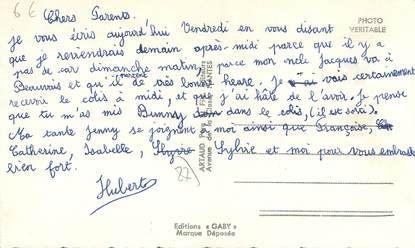 6 €
Chers Parents.
PHOTO
VERITABLE
Je vous écris aujourd'hui Vendredi en vous disant
que je reviendrais demain après-midi parce que il y a
pas de car dimanche matin, parce mon oncle Jacques va à
Beauvais et qu'il de très bonne heure. Je vais certainement
recevoir le colis à midi, et que j'ai hâte de l'avoir. Je pense
que tu m'as mis Bunny dans le colis, (il est sorti).
Ma tante Jenny se joignent à moi ainsi que Françoise,
Catherine, Isabelle, Sylvie et moi pour vous embrasse
bien fort.
Hubert
27
ARTAUD
NANTES
Editions « GABY »
Marque Déposée